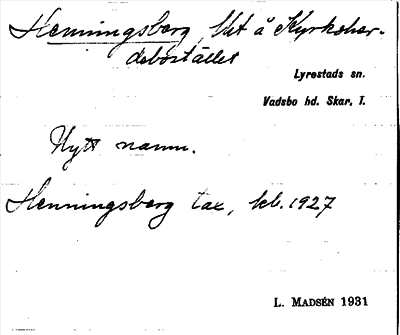 Henningsberg, Ut å Kyrkoher-
debostället
Lyrestads sn.
Vadsbo hd. Skar. l.
Nytt namn.
Henningsberg tax, kb. 1927
L. MADSÉN 1931